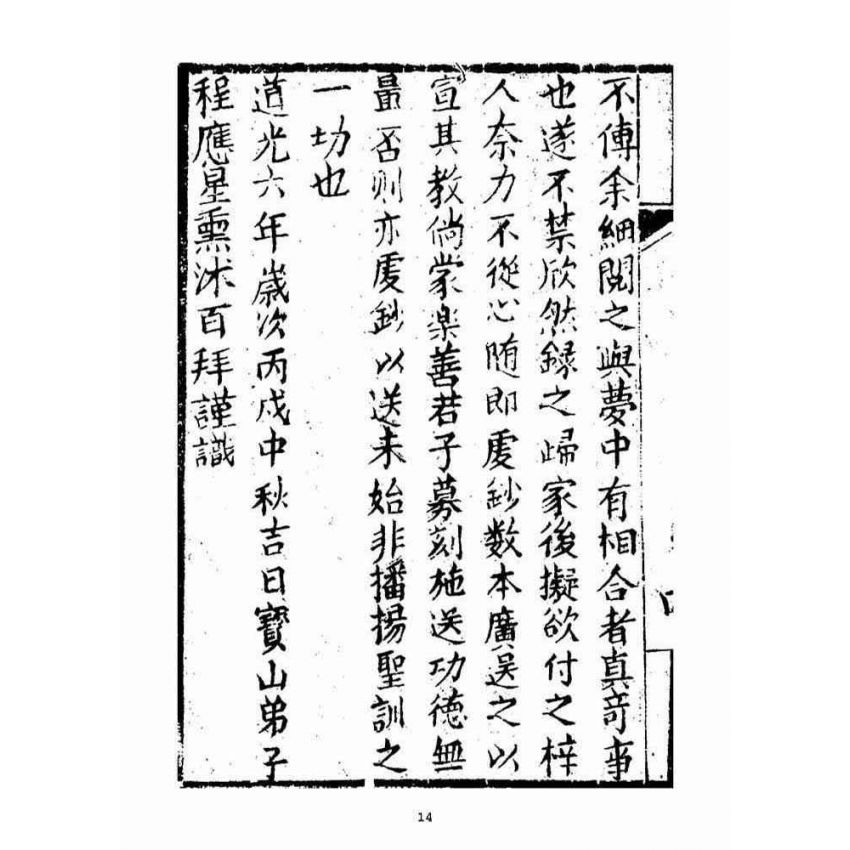 不傳余細閱之與夢中有相合者真奇事
也遂不禁欣然録之歸家後擬欲付之梓
人奈力不從心随即虔鈔数本廣送之以
宣其教倘蒙樂善君子募刻施送功德無
量否则亦虔鈔以送未始非播揚聖訓之
一功也
道光六年歲次丙戌中秋吉日寶山弟子
程應星熏沐百拜謹識
14